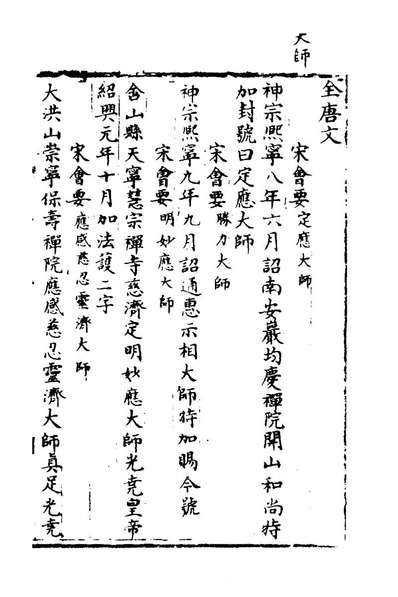 大師
全唐文
宋會要定應大師
神宗熙寧八年六月詔南安巖均慶禪院開山和尚特
加封號曰定應大師
宋會要勝力大師
神宗熙寧九年九月詔通惠示相大師特加賜今號
宋會要明妙應大師
含山縣天寧慧宗禪寺慈濟定明妙應大師光堯皇帝
紹興元年十月加法護二字
宋會要應感慈忍靈濟大師
大洪山崇寧保壽禪院應感慈忍靈濟大師真足光堯